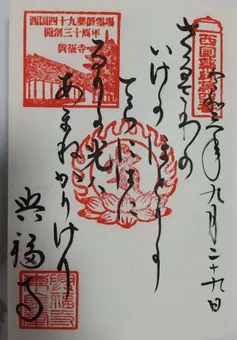 令和元年九月二十九日
さるさわの
いけのほとりの
てらにはに
るりの光ハ
あまねかりけり
興福寺
西国四十九薬師霊場
開創三十周年
興福寺